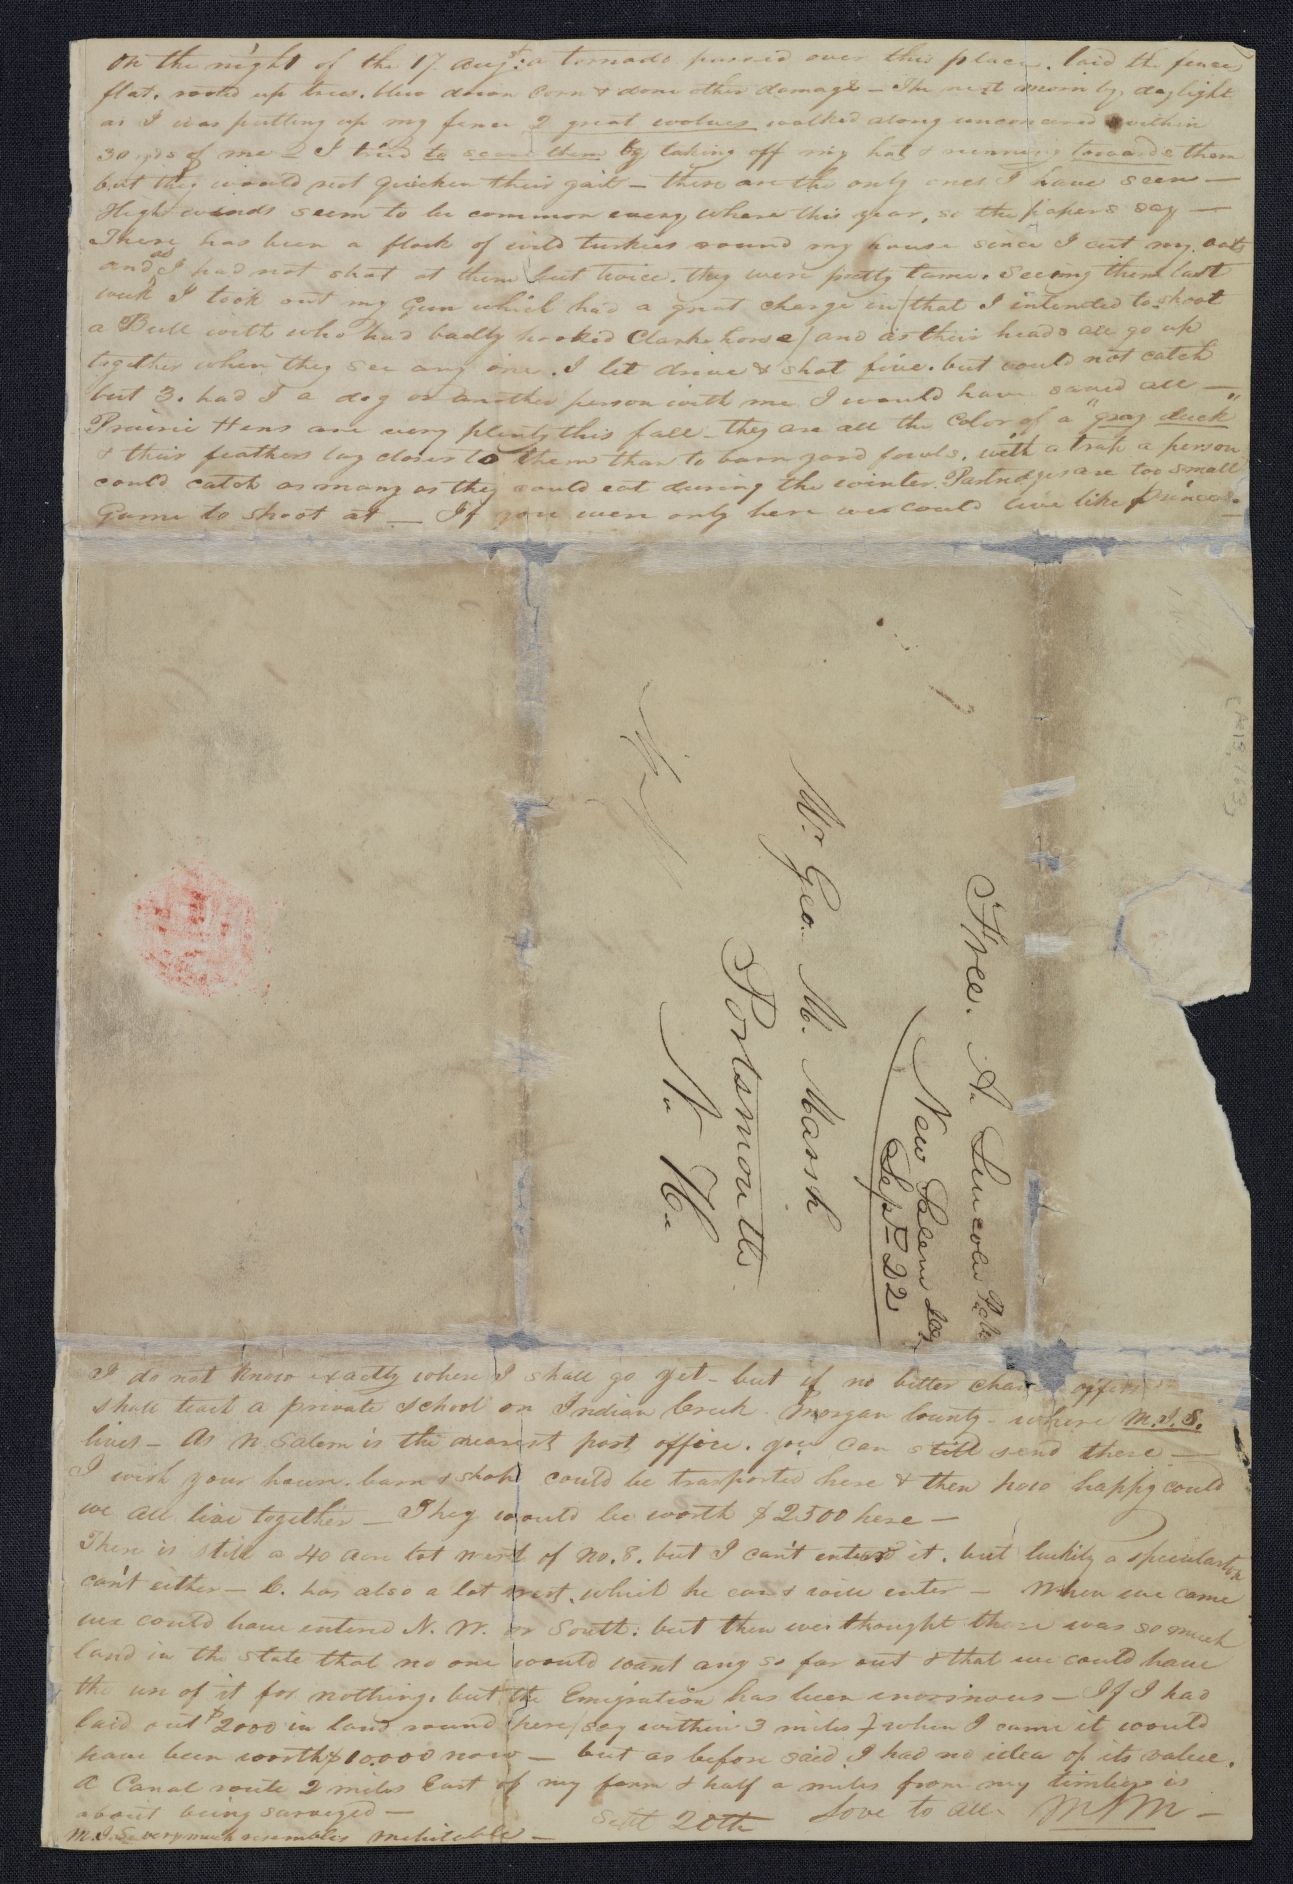 On the night of the 17 Augst: a tornado passed over this place. laid the fence
flat. rooted up trees. blew down corn & done other damage — The next morn by daylight
as I was putting up my fence 2 great wolves walked along unconcerned within
30 yds of me — I tried to scare them by taking off my hat & running towards them
but they would not quicken their gait — these are the only ones I have seen —
High winds seem to be common every where this year, so the papers say —
There has been a flock of wild turkies round my house since I cut my oats
and as I had not shot at them but twice. they were pretty tame. seeing them last
week I took out my Gun which had a great charge in (that I intended to shoot
a Bull with who had badly hooked Clarks horse) and as their heads all go up
together when they see any one. I let drive & shot five. but could not catch
but 3. had I a dog or another person with me I would have saved all —
Prairie Hens are very plenty this fall — they are all the color of a "gray duck"
& their feathers lay closer to them than to barn yard fowls. with a trap a person
could catch as many as they could eat during the winter. Partridges are too small
Game to shoot at — If you were only here we could live like princes —
Free. A. Lincoln P.M.
New Salem Ill
Sept 22
Mr Geo. M. Marsh
Portsmouth
N. H.
I do not know exactly where I shall go yet — but if no better chance offers
shall teach a private school on Indian Creek Morgan County — where M.J.S.
lives — As N. Salem is the nearest post office. you can still send there —
I wish your house. barn & shop could be trasported here & then how happy could
we all live together — They would be worth $2500 here —
There is still a 40 acre lot west of No. 8. but I can't enter it. but luckily a speculator
can't either — C. has also a lot west, which he can & will enter — When we came
we could have entered N. W. or South. but then we thought there was so much
land in the state that no one would want any so far out & that we could have
the use of it for nothing. but the Emigration has been enormous — If I had
laid out $2000 in land round here (say within 3 miles) when I came it would
have been worth $10.000 now — but as before said I had no idea of its value.
A Canal route 2 miles East of my farm & half a miles from my timber is
about being surveyed —
Sept 20th Love to all. M S M —
M.J.S. very much resembles Mehitable —